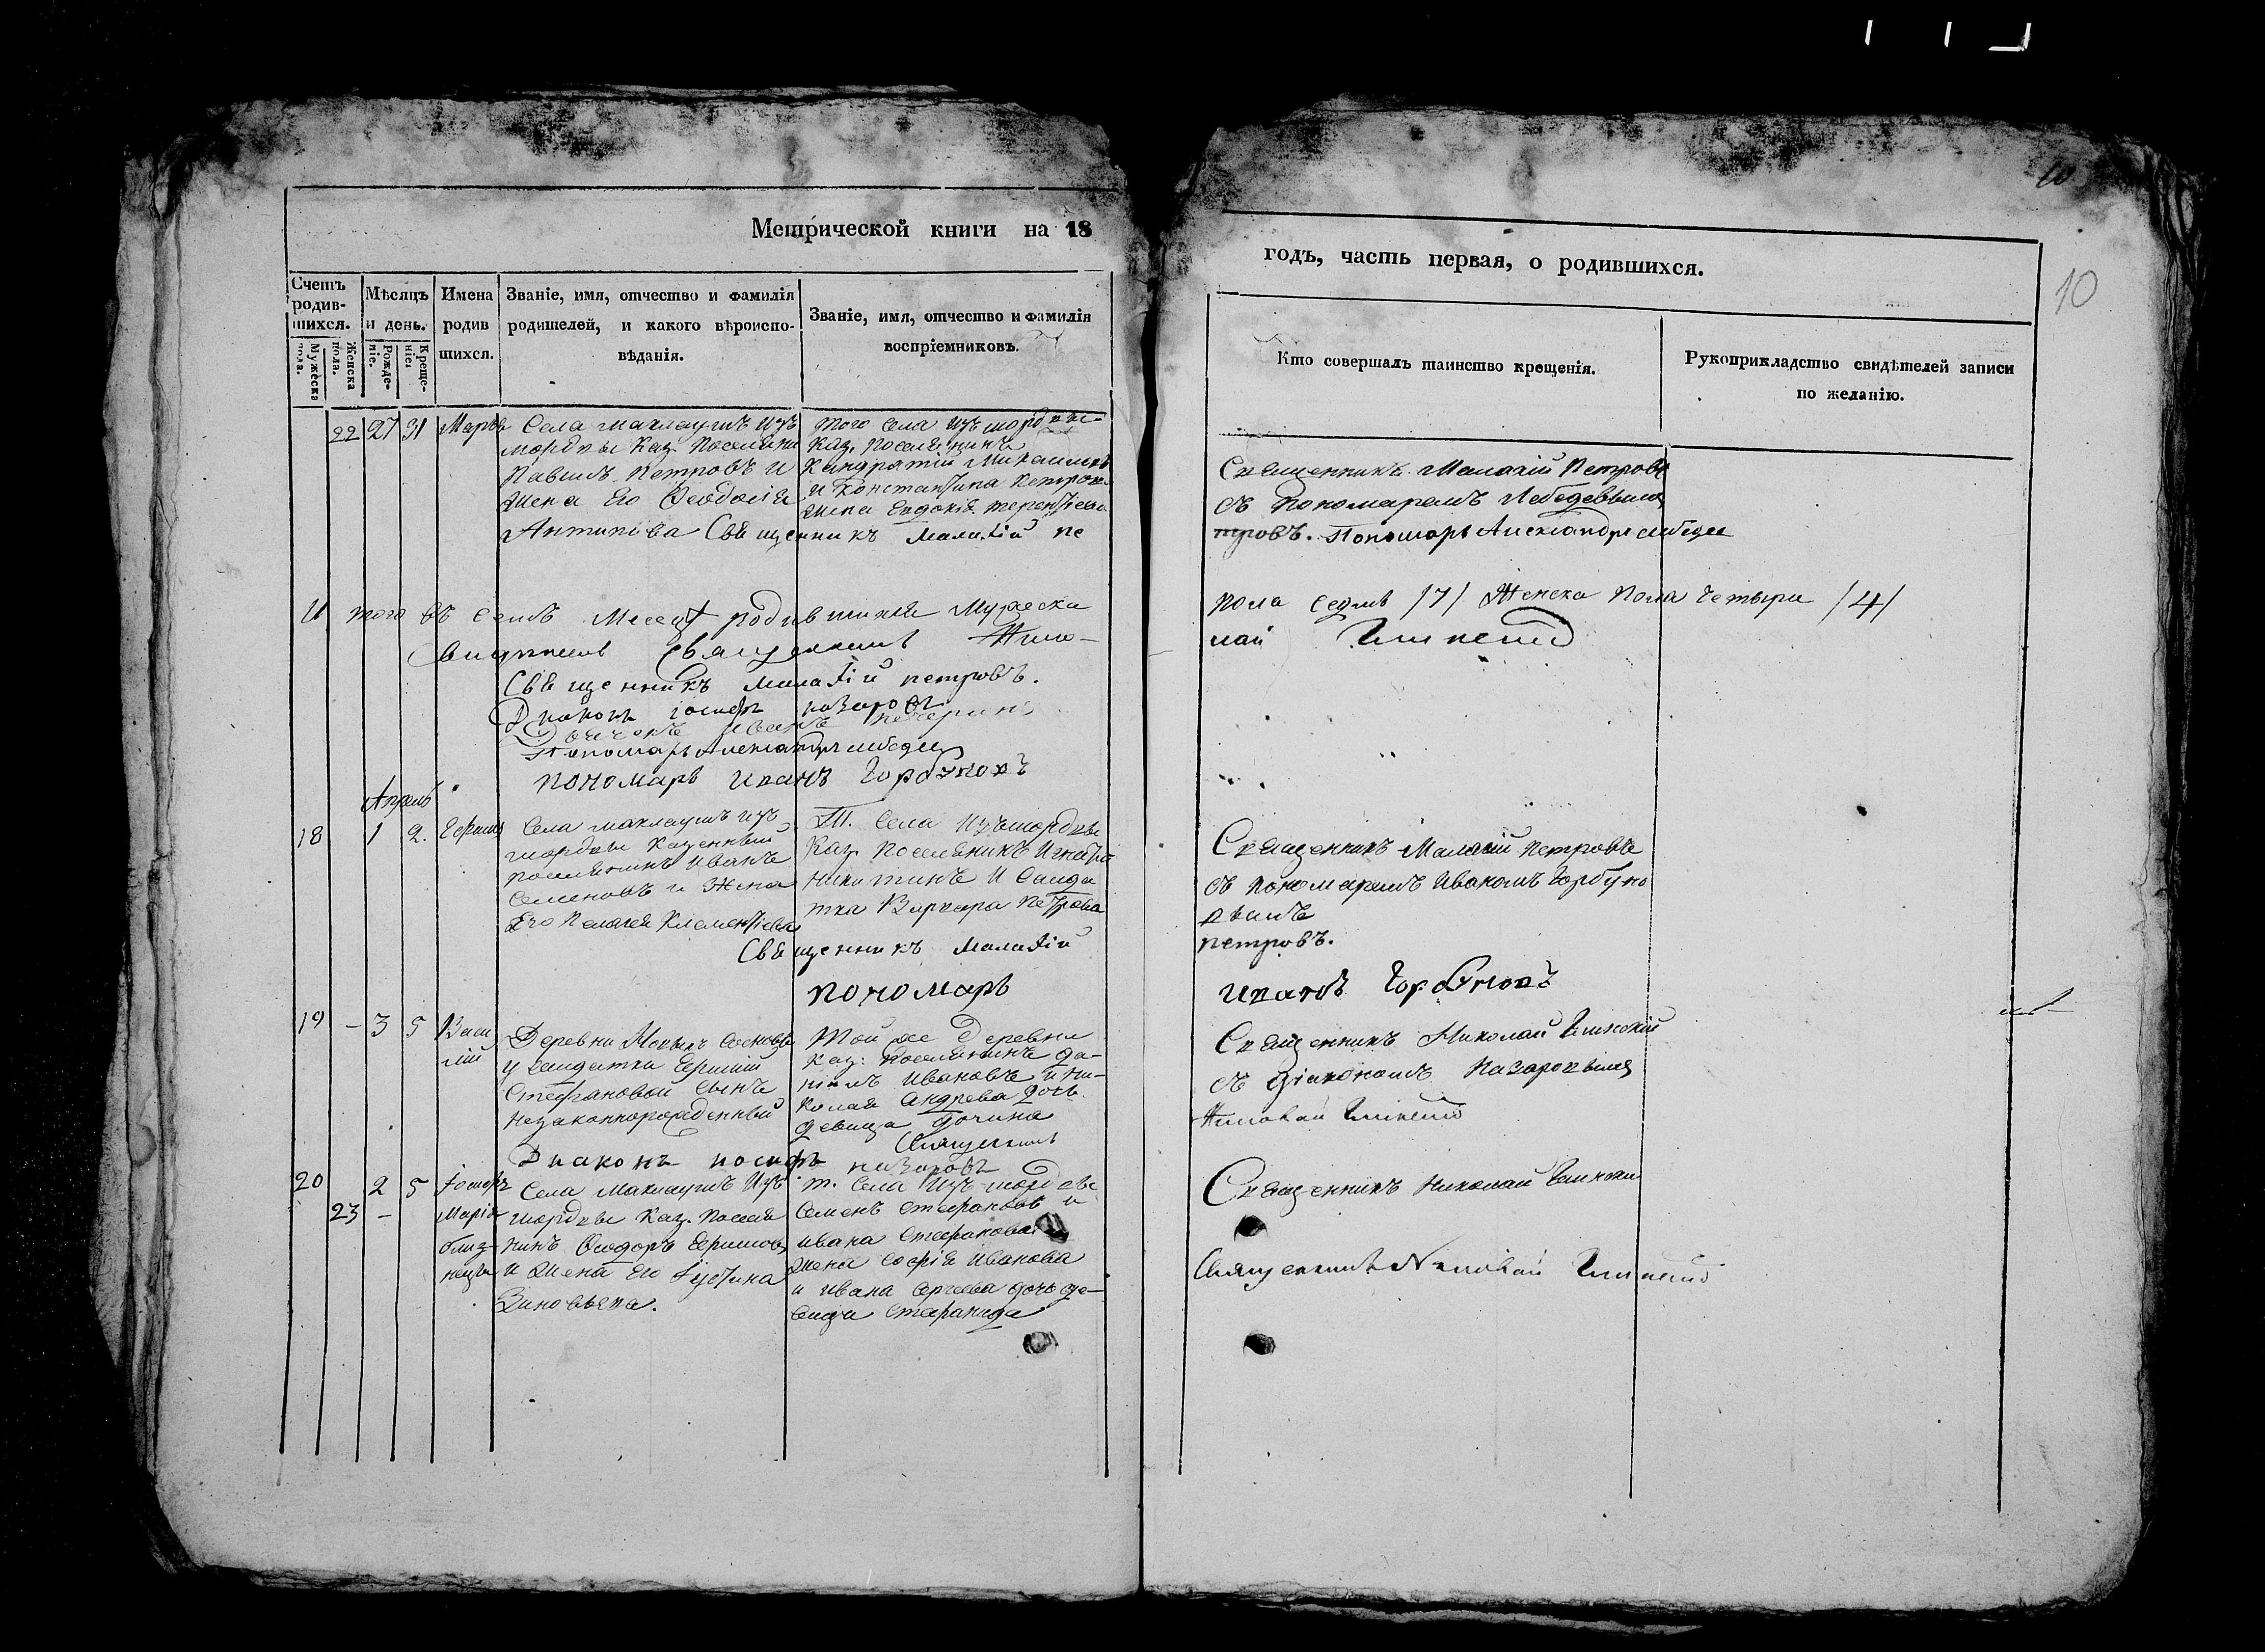 10
10
Метрической книги на 18
годъ, часть первая, о родившихся.
Счетъ родив-
шихся.
Мужеска пола.
Женска пола.
Мѣсяцъ
и день.
Рожде-
ніе.
Креще-
ніе.
Имена
родив
шихся.
Званіе, имя, отчество и фамилія
родителей, и какого вѣроиспо-
вѣданія.
Званіе, имя, отчество и фамилія
воспріемниковъ.
Кто совершалъ таинство крещенія.
Рукоприкладство свидѣтелей записи
по желанію.
22 27 31
Села Маклаушъ изъ
мордвы Каз. Поселянинъ
Павелъ Петровъ и
жена Его Феодосія
Антипова
Того села изъ мордвы
Каз. Поселянинъ
Кандратій Михайловъ
и Константина Петрова
жена Евдокія Терентіева
Священникъ Малахій Петровъ
съ Пономаремъ Лебедевымъ
Священникъ Малахій Пе
тровъ. Пономарь Александръ Лебедев
И того въ семъ месецѣ родившихся Мужеска
пола седмь /7/ Женска Пола Четыри /4/
Священникъ Малахій Петровъ.
Диаконъ Іосифъ Назаровъ
Пономарь Александръ Лебедев
Пономарь Иванъ Горбуновъ
Апрель
18 1 2.
Села Маклаушъ изъ
мордвы Казенный
поселянинъ Иванъ
Семеновъ и Жена
Его Пелагея Клементіева
Т. Села изъ мордвы
Каз. Поселянинъ Игнатій
Никитинъ и Салда
тка Варвара Петрова
Священникъ Малахій Петровъ
съ пономаремъ Иваномъ Горбуно
вымъ
Священникъ Малахій
петровъ.
Пономарь
Иванъ Горбуновъ
19 - 3 5
Васи
лій
Деревни
у салдатки
Стефановой сынъ
незаконнорожденный
Той же Деревни
Каз: Поселянинъ Да-
ніилъ Ивановъ и Ни-
колая Андреева дочь
девица
Священникъ Николай
съ Діакономъ Назаровымъ
Священникъ
Диаконъ Иосифъ Назаровъ
20 2 5
23 -
Іосифъ
Марія
близ-
нецы
Села Маклаушъ Изъ
мордвы Каз. Поселя
нинъ Феодоръ Ефимовъ
и жена Его Іустина
Зиновьева.
т. Села Изъ мордвы
Семенъ Стефановъ и
Ивана Стефанова
жена Софія Иванова
и Ивана Сергеева дочь де-
вица Стефанида
Священникъ Николай
Священникъ Николай